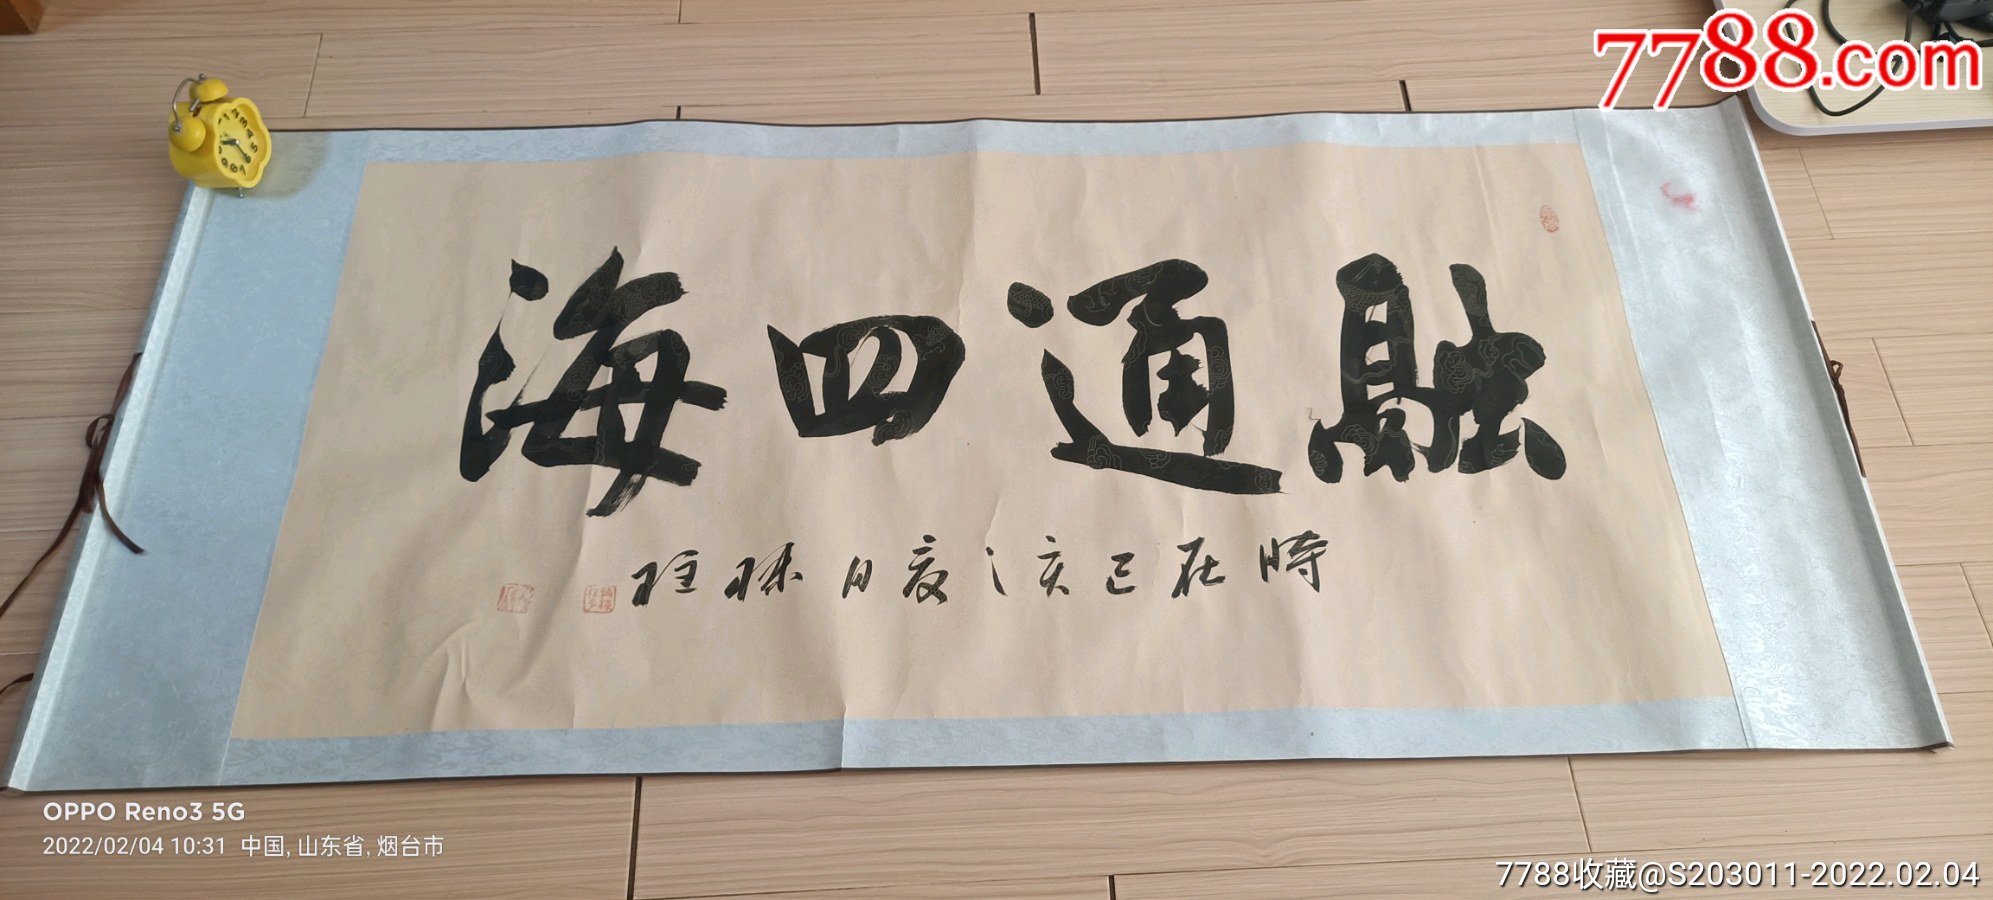 7788.com
融通四海
時在己亥之夏月林
OPPO Reno3 5G
2022/02/04 10:31 中国, 山东省, 烟台市
7788收藏@S203011-2022.02.04